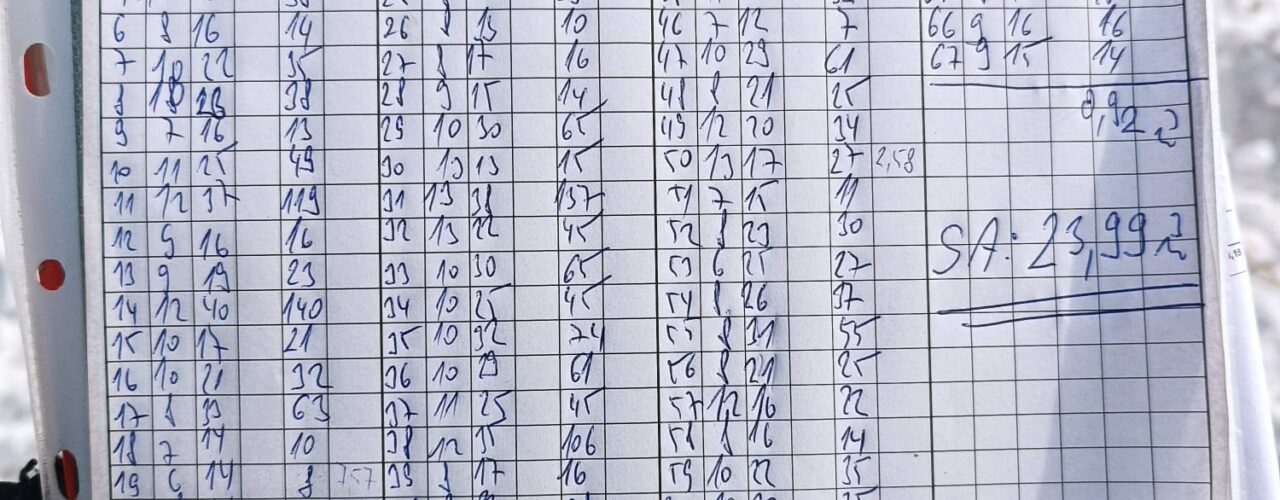 6 8 16 14 26 8 13 10 46 7 12 7 66 9 16 16
7 10 22 35 27 8 17 16 47 10 29 61 67 9 15 14
8 10 26 38 28 9 15 14 48 8 21 25
9 7 16 13 29 10 30 65 49 12 20 34
10 11 25 49 30 13 13 15 50 13 17 27 2,58
11 12 37 119 31 13 38 137 51 7 15 11
12 9 16 16 32 13 22 45 52 8 23 30 SA: 23,99
13 9 19 23 33 10 30 65 53 6 25 27
14 12 40 140 34 10 25 45 54 8 26 37
15 10 17 21 35 10 32 74 55 8 31 55
16 10 21 32 36 10 29 61 56 8 21 25
17 8 33 63 37 11 25 45 57 12 16 22
18 7 14 10 38 12 35 106 58 8 16 14
19 6 14 8 757 39 8 17 16 59 10 22 35